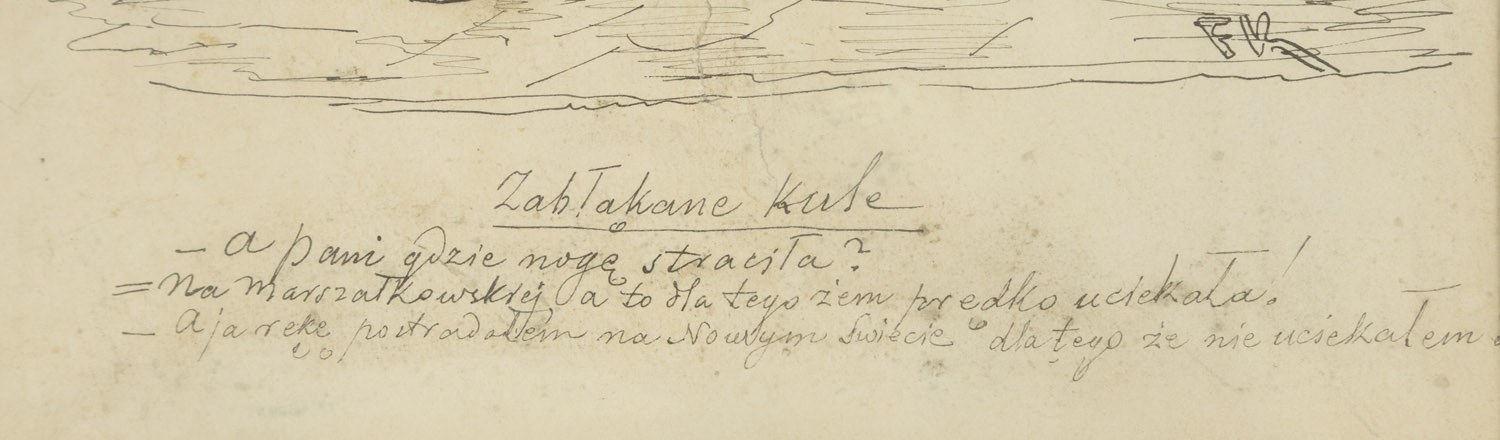 Zabłąkane Kule
– A pani gdzie nogę straciła?
= Na Marszałkowskiej a to dla tego żem prędko uciekała!
– A ja rękę postradałem na Nowym Świecie dla tego że nie uciekałem